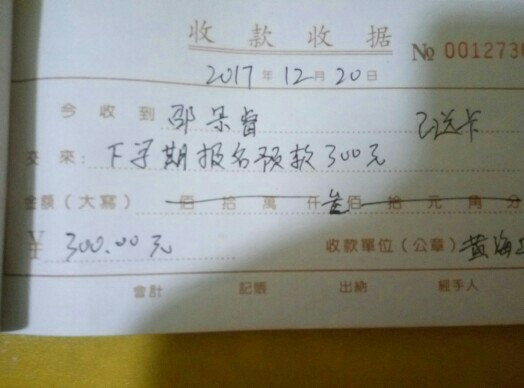 收款收据 № 0012730
2017年12月20日
今收到 邵呆睿 已送卡
交來: 下学期报名预款300元
金額(大寫) 佰拾萬仟叁佰拾元角分
¥ 300.00元 收款單位(公章) 黄海
會計 記賬 出納 經手人